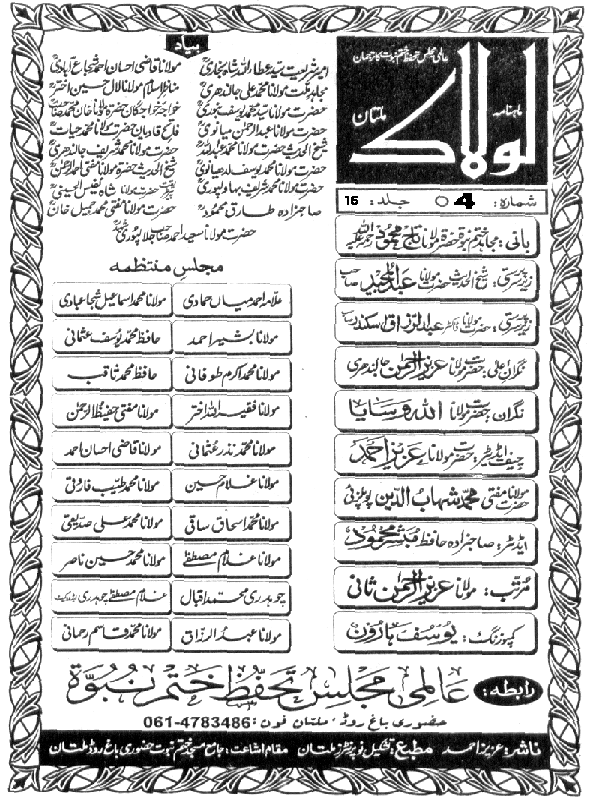 عالمی مجلس تحفظ ختم نبوت کا ترجمان
ماہنامہ
لولاک
ملتان
شمارہ: 4 ○ جلد: 16
بانی: مجاہد ختم نبوۃ حضرۃ مولانا تاج محمود رحمۃ اللہ علیہ
زیر سرپرستی: شیخ الحدیث حضرت مولانا عبدالمجید صاحب
زیر سرپرستی: حضرت مولانا ڈاکٹر عبدالرزاق سکندر صاحب
نگران اعلیٰ: حضرت مولانا عزیز الرحمٰن جالندھری
نگران: حضرت مولانا اللہ وسایا
چیف ایڈیٹر: حضرت مولانا عزیز احمد
حضرت مولانا مفتی محمد شہاب الدین پوپلزئی
ایڈیٹر: صاحبزادہ حافظ مبشر محمود
مرتب: مولانا عزیز الرحمٰن ثانی
کمپوزنگ: یوسف ہارون
بیاد
امیر شریعت سید عطاء اللہ شاہ بخاریؒ
مولانا قاضی احسان احمد شجاع آبادیؒ
مجاہد ملت مولانا محمد علی جالندھریؒ
مناظر اسلام مولانا لال حسین اخترؒ
حضرت مولانا سید محمد یوسف بنوریؒ
خواجہ خواجگان حضرۃ مولانا خان محمد صاحبؒ
حضرت مولانا عبدالرحمٰن میانویؒ
فاتح قادیان حضرت مولانا محمد حیاتؒ
شیخ الحدیث حضرت مولانا محمد عبداللہؒ
حضرت مولانا محمد شریف جالندھریؒ
حضرت مولانا محمد یوسف لدھیانویؒ
شیخ الحدیث حضرۃ مولانا مفتی احمد الرحمٰنؒ
حضرت مولانا محمد شریف بہاولپوریؒ
حضرت مولانا شاہ نفیس الحسینیؒ
صاحبزادہ طارق محمودؒ
حضرت مولانا مفتی محمد جمیل خانؒ
حضرت مولانا سعید احمد صاحب جلالپوریؒ
مجلس منتظمہ
علامہ احمد میاں حمادی
مولانا محمد اسماعیل شجاعبادی
مولانا بشیر احمد
حافظ محمد یوسف عثمانی
مولانا محمد اکرم طوفانی
حافظ محمد ثاقب
مولانا فقیر اللہ اختر
مولانا مفتی حفیظ الرحمٰن
مولانا محمد نذر عثمانی
مولانا قاضی احسان احمد
مولانا غلام حسین
مولانا محمد طیب فاروقی
مولانا محمد اسحاق ساقی
مولانا محمد علی صدیقی
مولانا غلام مصطفےٰ
مولانا محمد حسین ناصر
چوہدری محمد اقبال
غلام مصطفےٰ چوہدری ایڈووکیٹ
مولانا عبدالرزاق
مولانا محمد قاسم رحمانی
رابطہ: عالمی مجلس تحفظ ختم نبوۃ
حضوری باغ روڈ، ملتان فون: 061-4783486
ناشر: عزیز احمد مطبع: تشکیل نو پرنٹرز ملتان مقام اشاعت: جامع مسجد ختم نبوت حضوری باغ روڈ ملتان